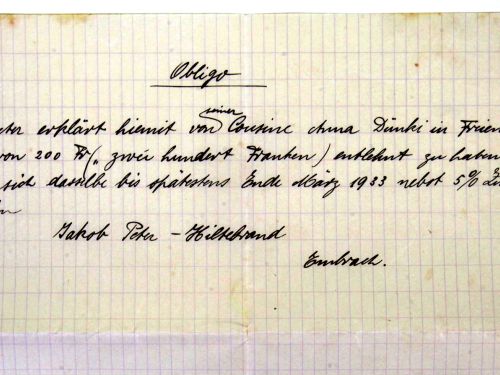 Obligo
eter erklärt hiemit von seiner Cousine Anna Dünki in Frien
von 200 Fr („ zwei hundert Franken) entlehnt zu haben
sich dasselbe bis spätestens Ende März 1933 nebst 5% Zi
Jakob Peter - Hiltebrand
Embrach.